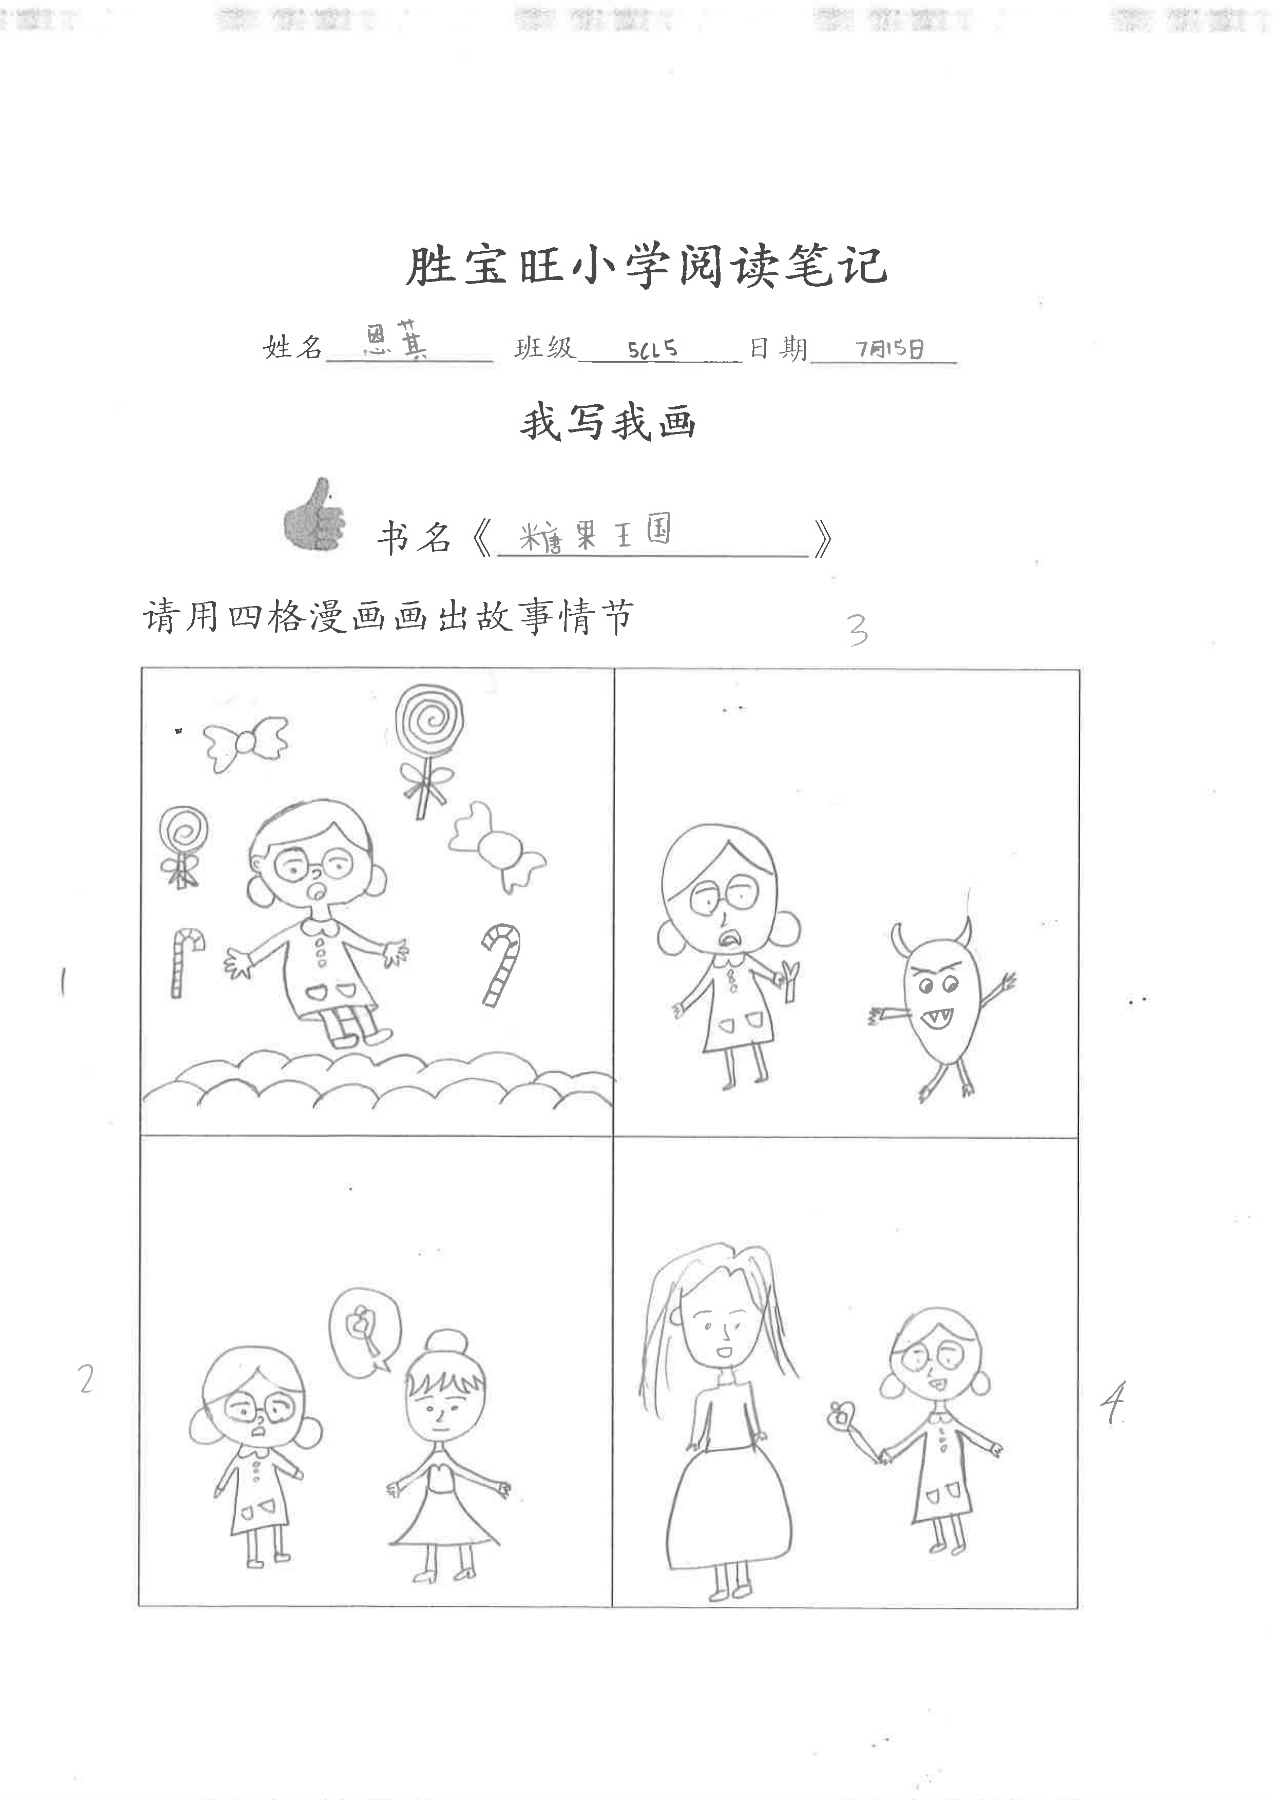 胜宝旺小学阅读笔记
姓名 恩萁 班级 5CL5 日期 7月15日
我写我画
书名《 糖果王国 》
请用四格漫画画出故事情节
3
1
2
4